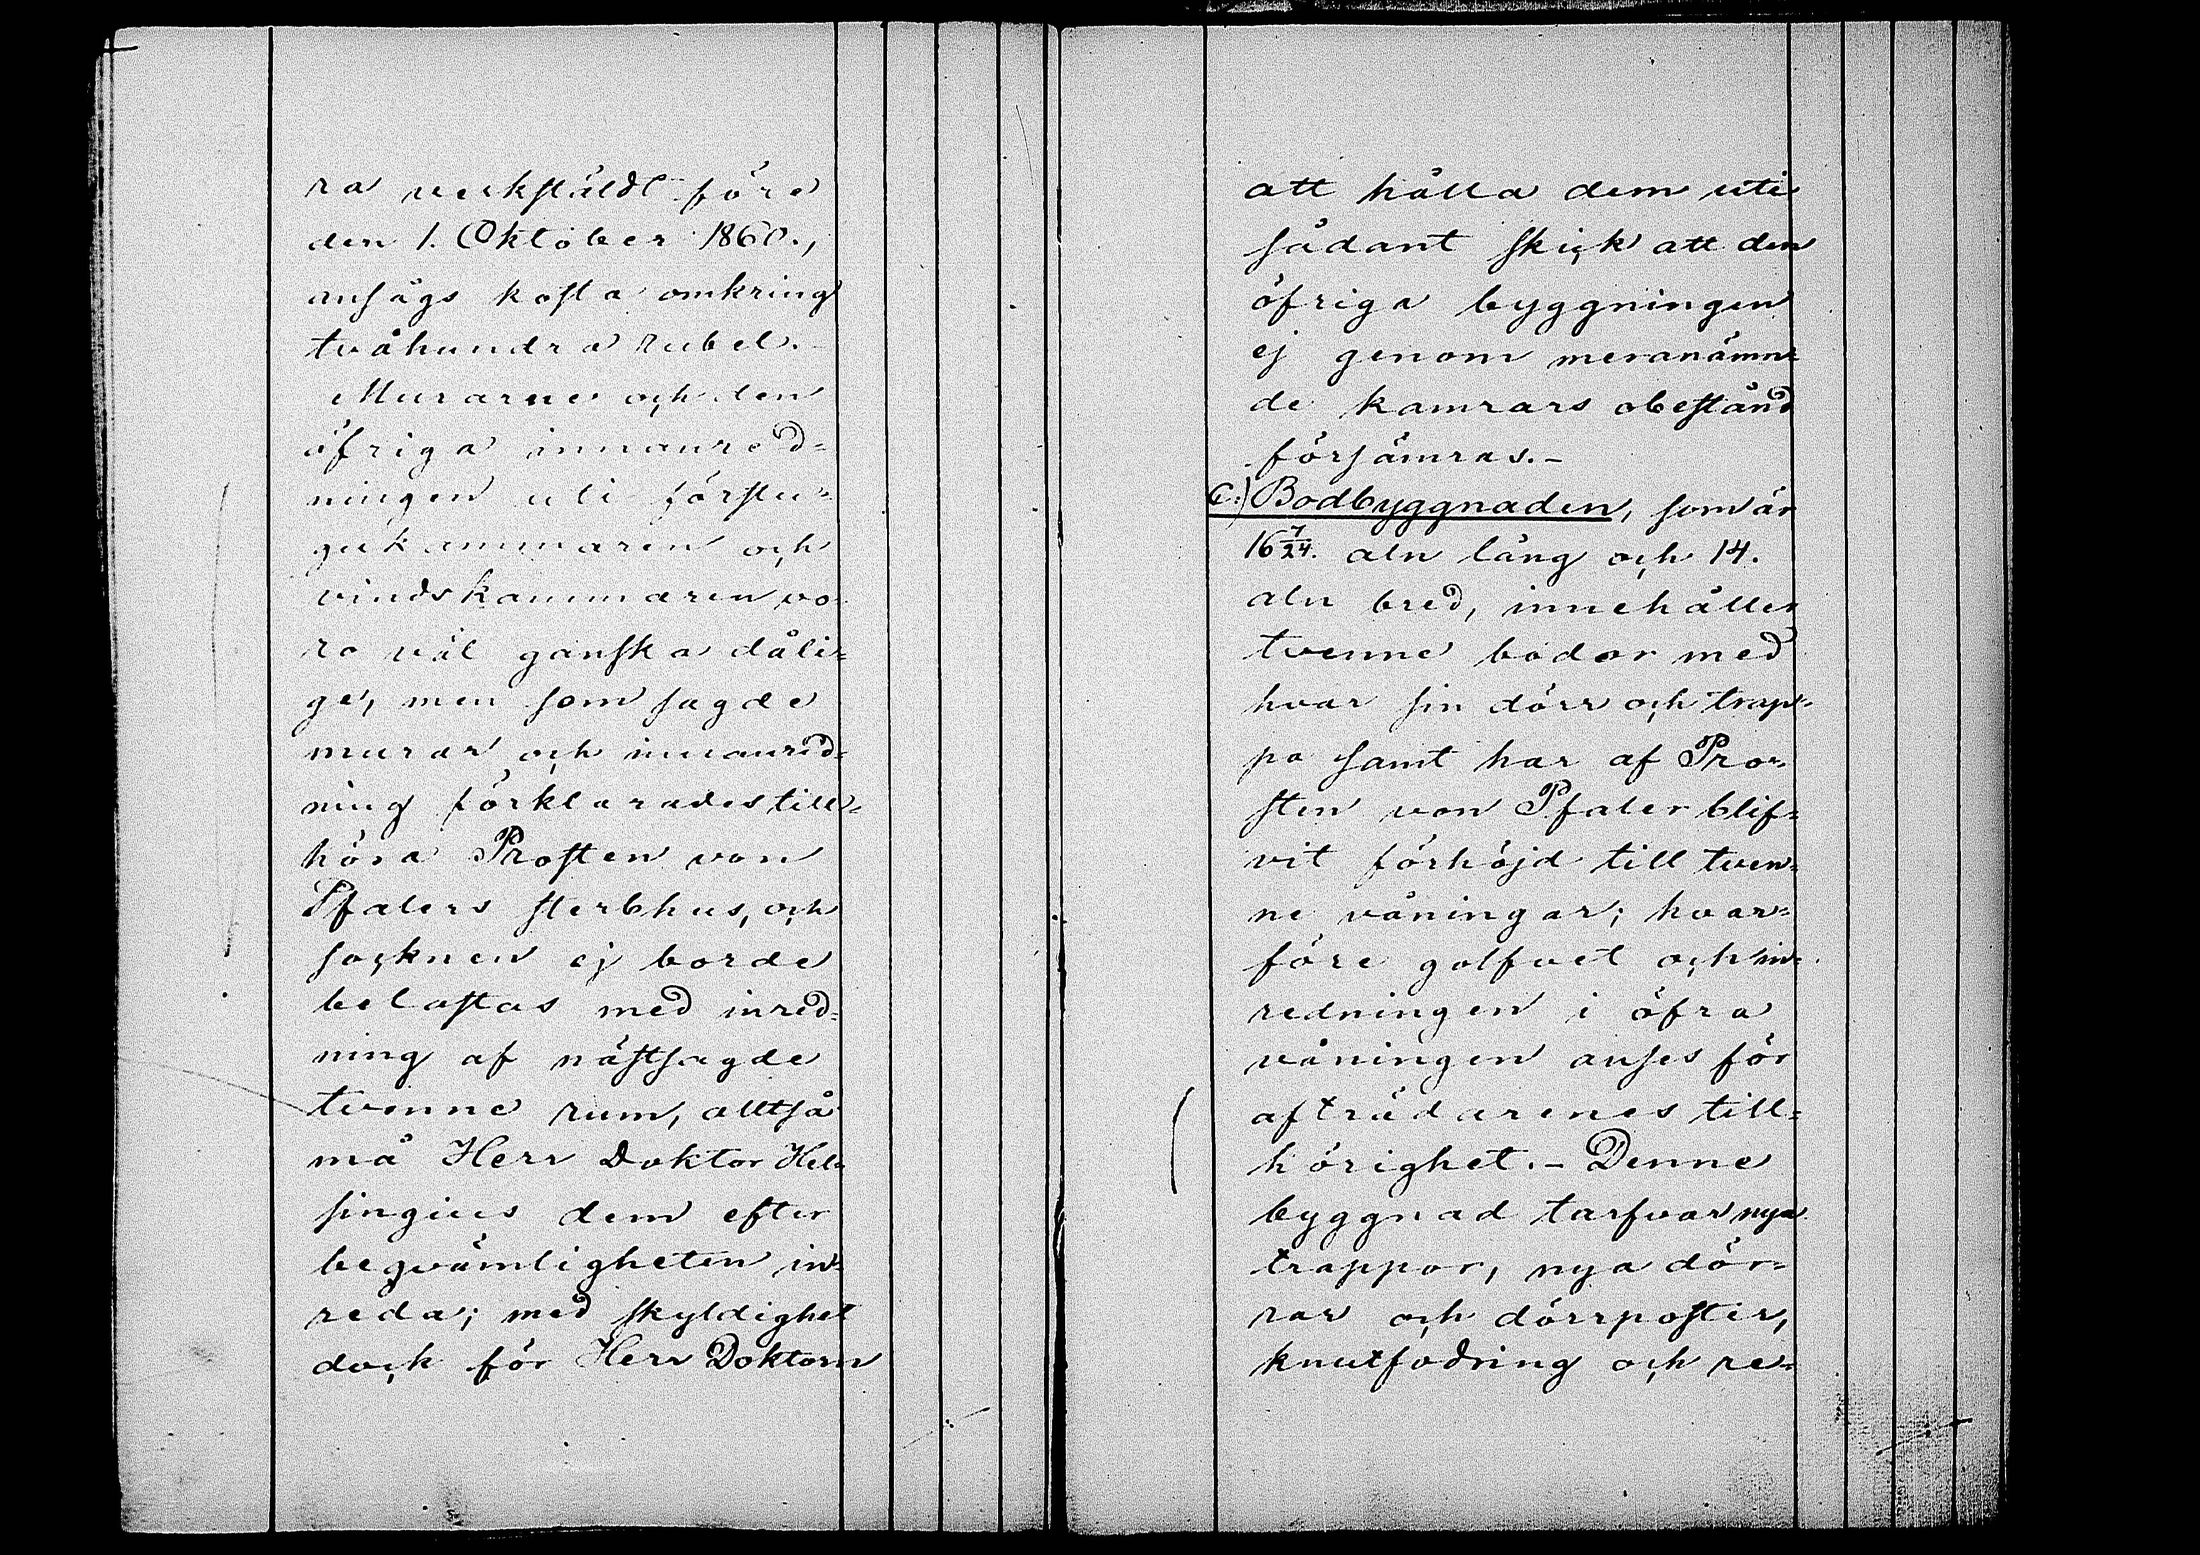 ra verkstäldt före
den 1. Oktober 1860.,
ansågs kosta omkring
tvåhundra rubel.
Murarne och den
öfriga innanred=
ningen uti förstu=
gukammaren och
vindskammaren vo
ro väl ganska dåli=
ge, men som sagde
murar och innanred=
ning förklarades till=
höra Prosten von
Pfalers sterbhus, och
socknen ej borde
belastas med inred=
ning af nästsagde
tvenne rum, alltså
må Herr Doktor Hel=
singius dem efter
beqvämligheten in=
reda; med skyldighet
dock för Herr Doktorn
att hålla dem uti
sådant skick att den
öfriga byggningen
ej genom meranämn=
de kamrars obestånd
försämras.–
C:) Bodbyggnaden, som är
16 7/24. aln lång och 14.
aln bred, innehåller
tvenne bodar med
hvar sin dörr och trap=
pa samt har af Pro=
sten von Pfaler blif=
vit förhöjd till tven=
ne våningar; hvar=
före golfvet och in=
redningen i öfra
våningen anses för
afträdarenes till=
hörighet.– Denne
byggnad tarfvar nya
trappor, nya dör=
rar och dörrposter,
knutfodring och re=